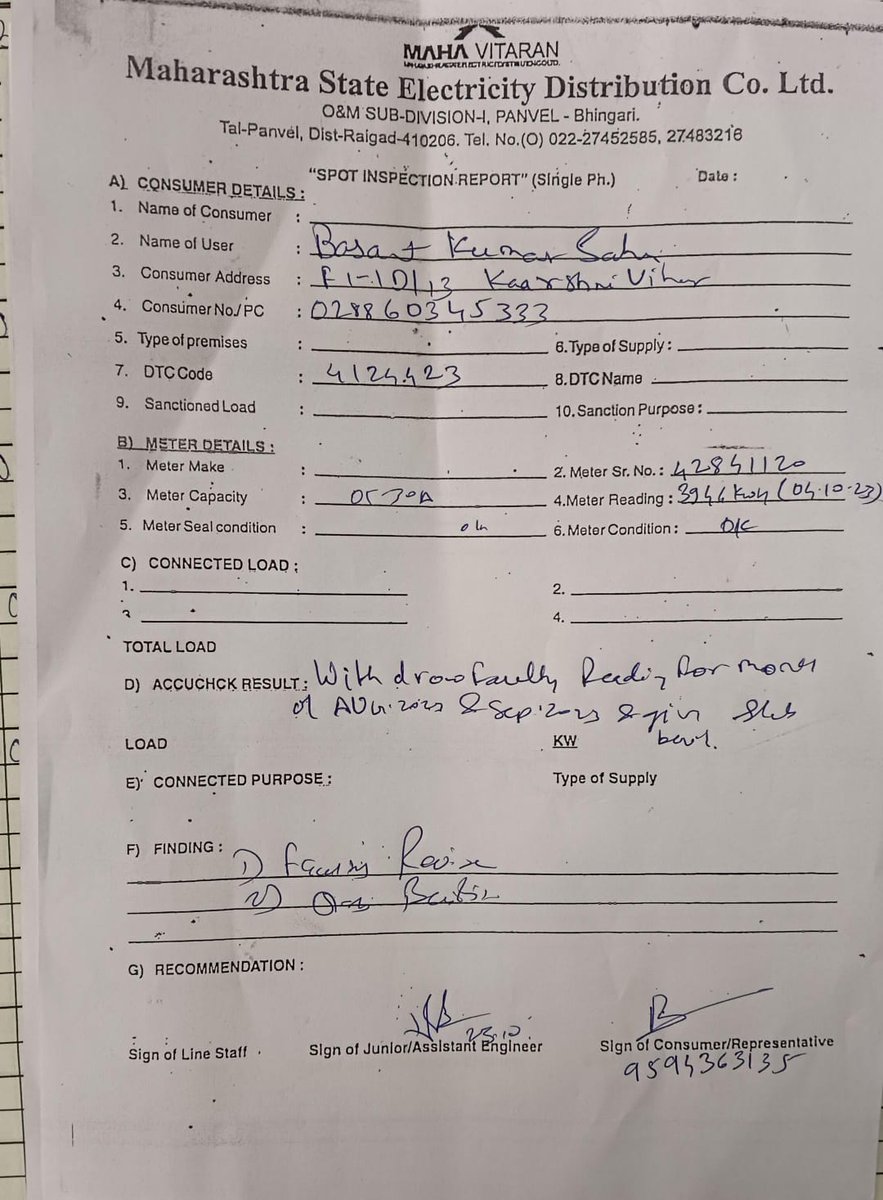 MAHA VITARAN
Maharashtra State Electricity Distribution Co. Ltd.
O&M SUB-DIVISION-I, PANVEL - Bhingari.
Tal-Panvel, Dist-Raigad-410206. Tel. No.(O) 022-27452585, 27483216
"SPOT INSPECTION REPORT" (Single Ph.) Date :
A) CONSUMER DETAILS :
1. Name of Consumer :
2. Name of User : Basant Kumar Sahu
3. Consumer Address : F1-10/13 Kaarshni Vihar
4. Consumer No./ PC : 028860345333
5. Type of premises : 6. Type of Supply :
7. DTC Code : 4124423 8. DTC Name
9. Sanctioned Load : 10. Sanction Purpose :
B) METER DETAILS :
1. Meter Make : 2. Meter Sr. No. : 42841120
3. Meter Capacity : 05-30A 4. Meter Reading : 3944 kwh (04-10-23)
5. Meter Seal condition : ok 6. Meter Condition : O/C
C) CONNECTED LOAD :
1. 2.
3 4.
TOTAL LOAD
D) ACCUCHCK RESULT : Withdraw faulty Reading for month
of AUG:2023 & Sep:2023 & giv Slab
benf.
LOAD KW
E) CONNECTED PURPOSE : Type of Supply
F) FINDING : 1) Faulty Revise
2)
G) RECOMMENDATION :
23.10
Sign of Line Staff Sign of Junior/Assistant Engineer Sign of Consumer/Representative
9594363135